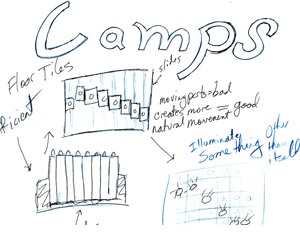 Lamps
Floor Tiles
slides
ficient
moving parts=bad
creates more = good
natural movement
Illuminate
Something
Other
than
itself